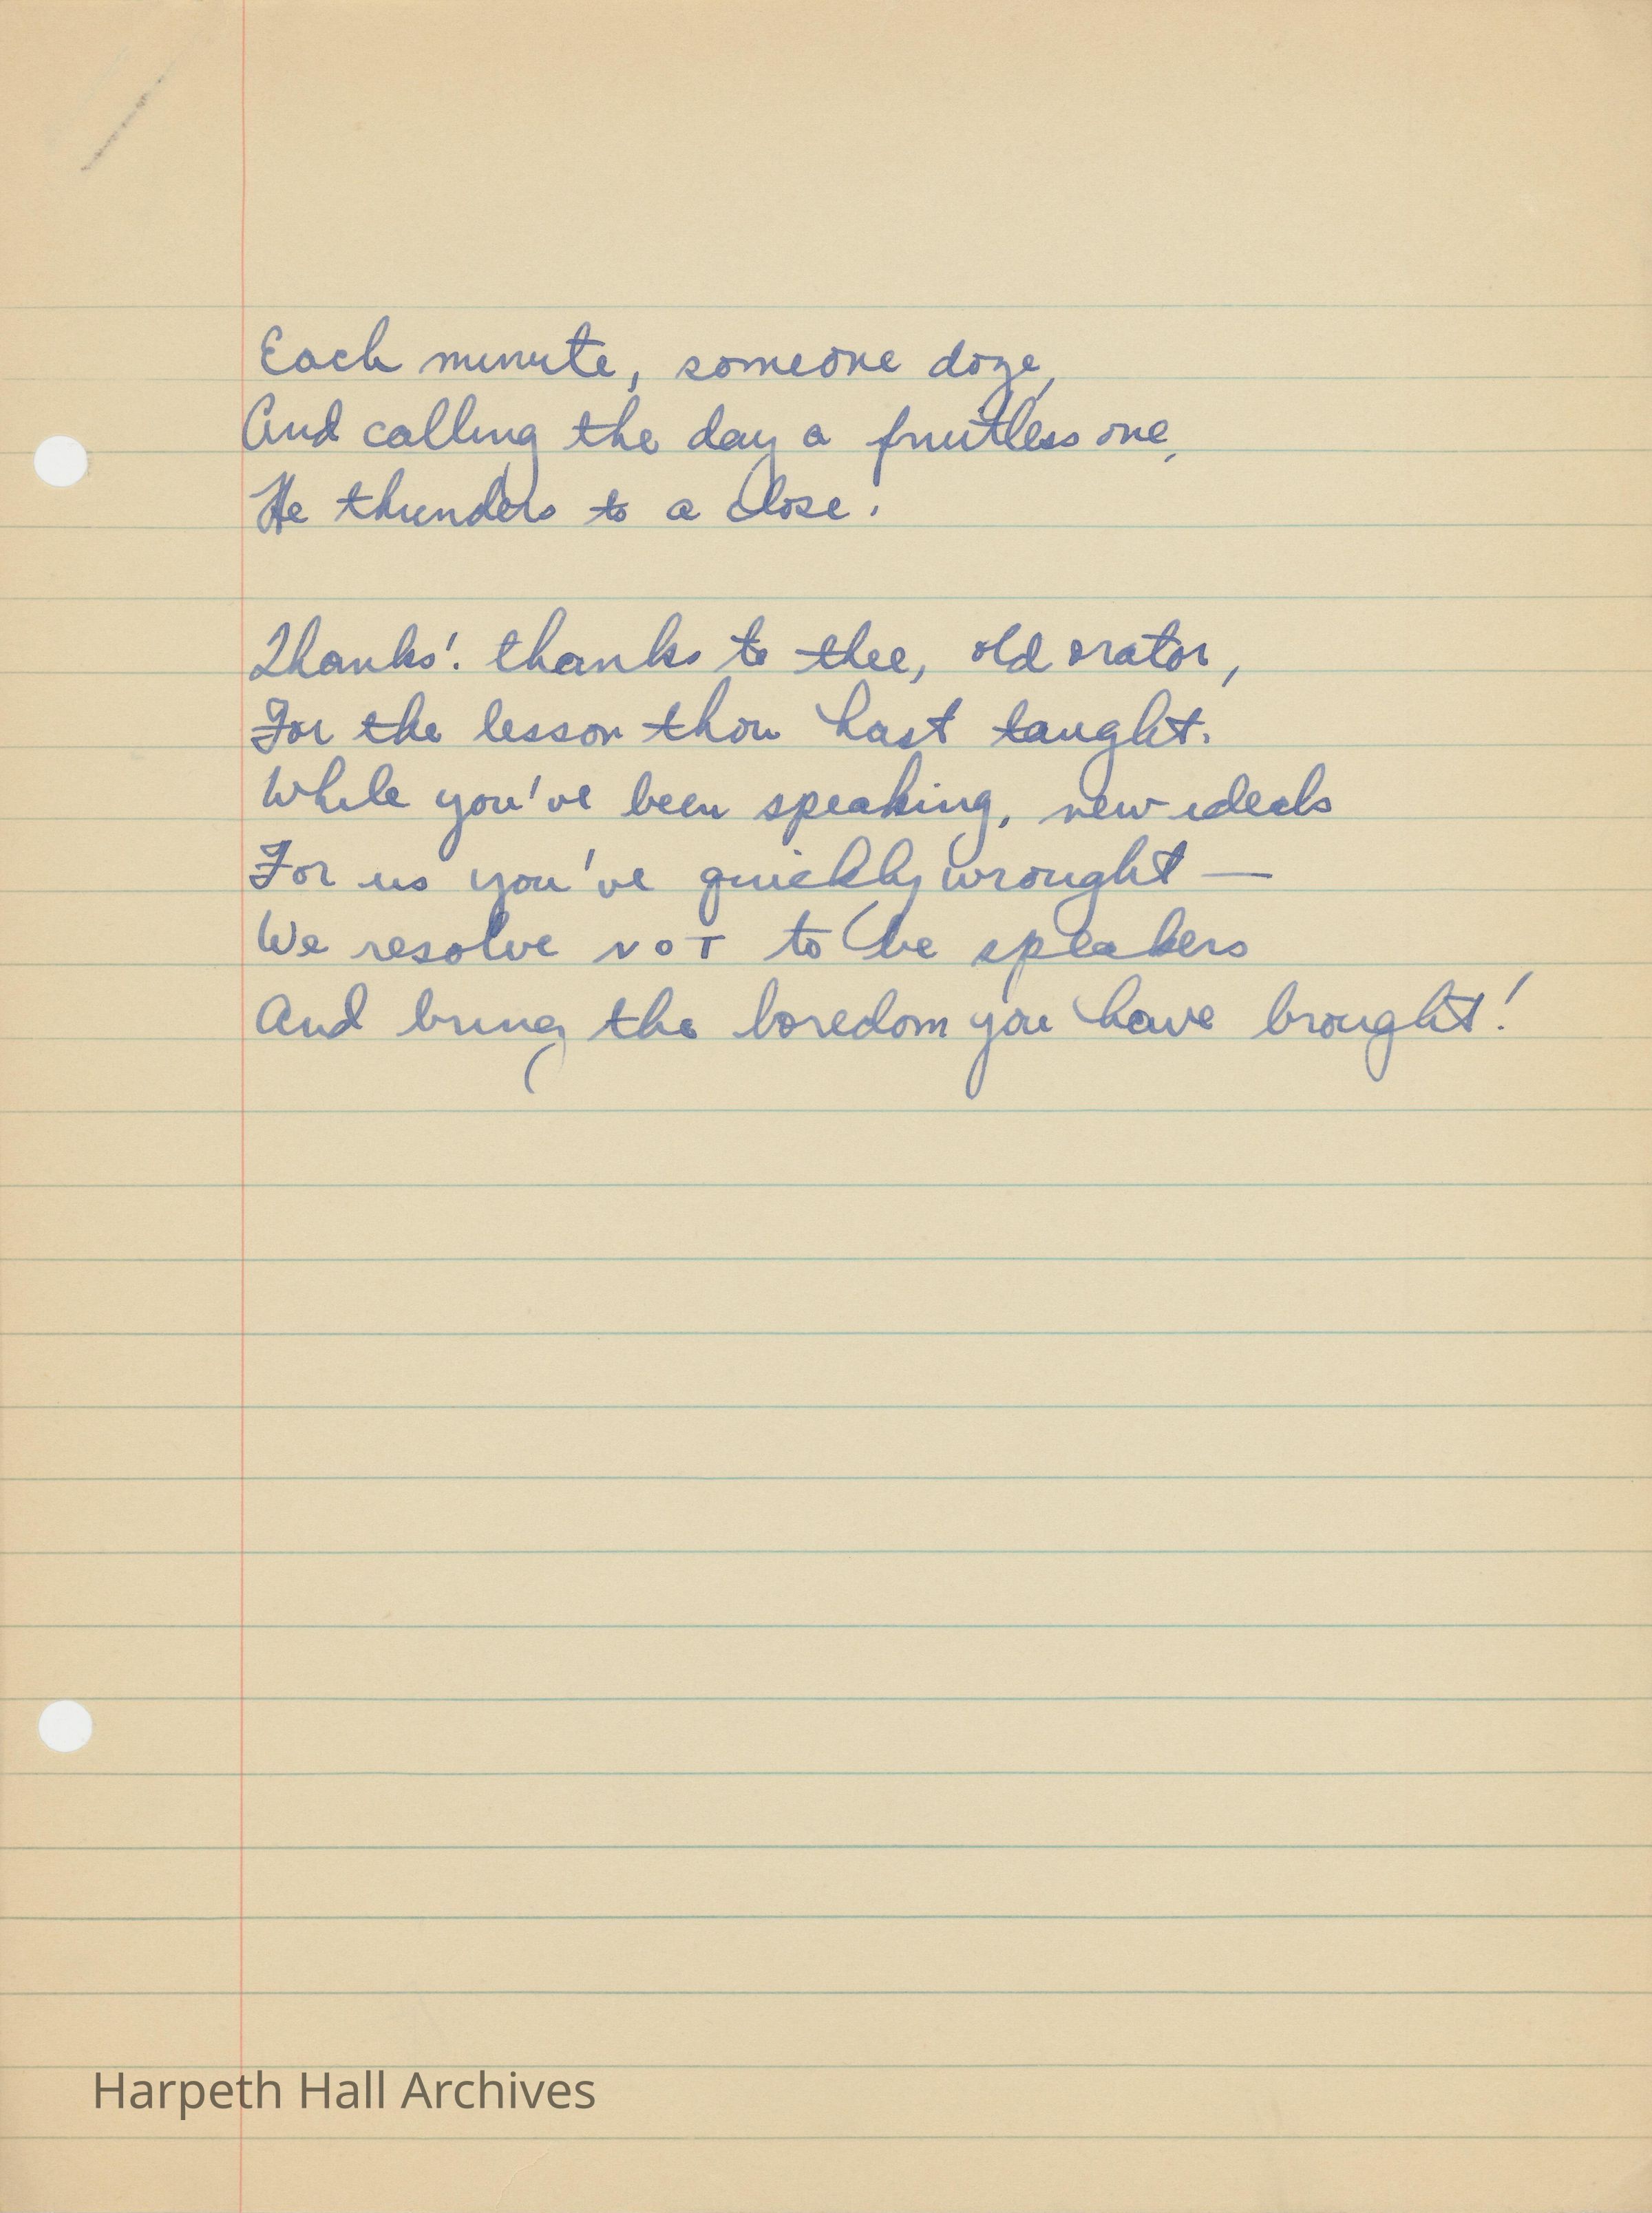 Each minute, someone doze,
And calling the day a fruitless one,
He thunders to a close!
Thanks! thanks to thee, old orator,
For the lesson thou hast taught.
While you've been speaking, new ideals
For us you've quickly wrought —
We resolve NOT to be speakers
And bring the boredom you have brought!
Harpeth Hall Archives